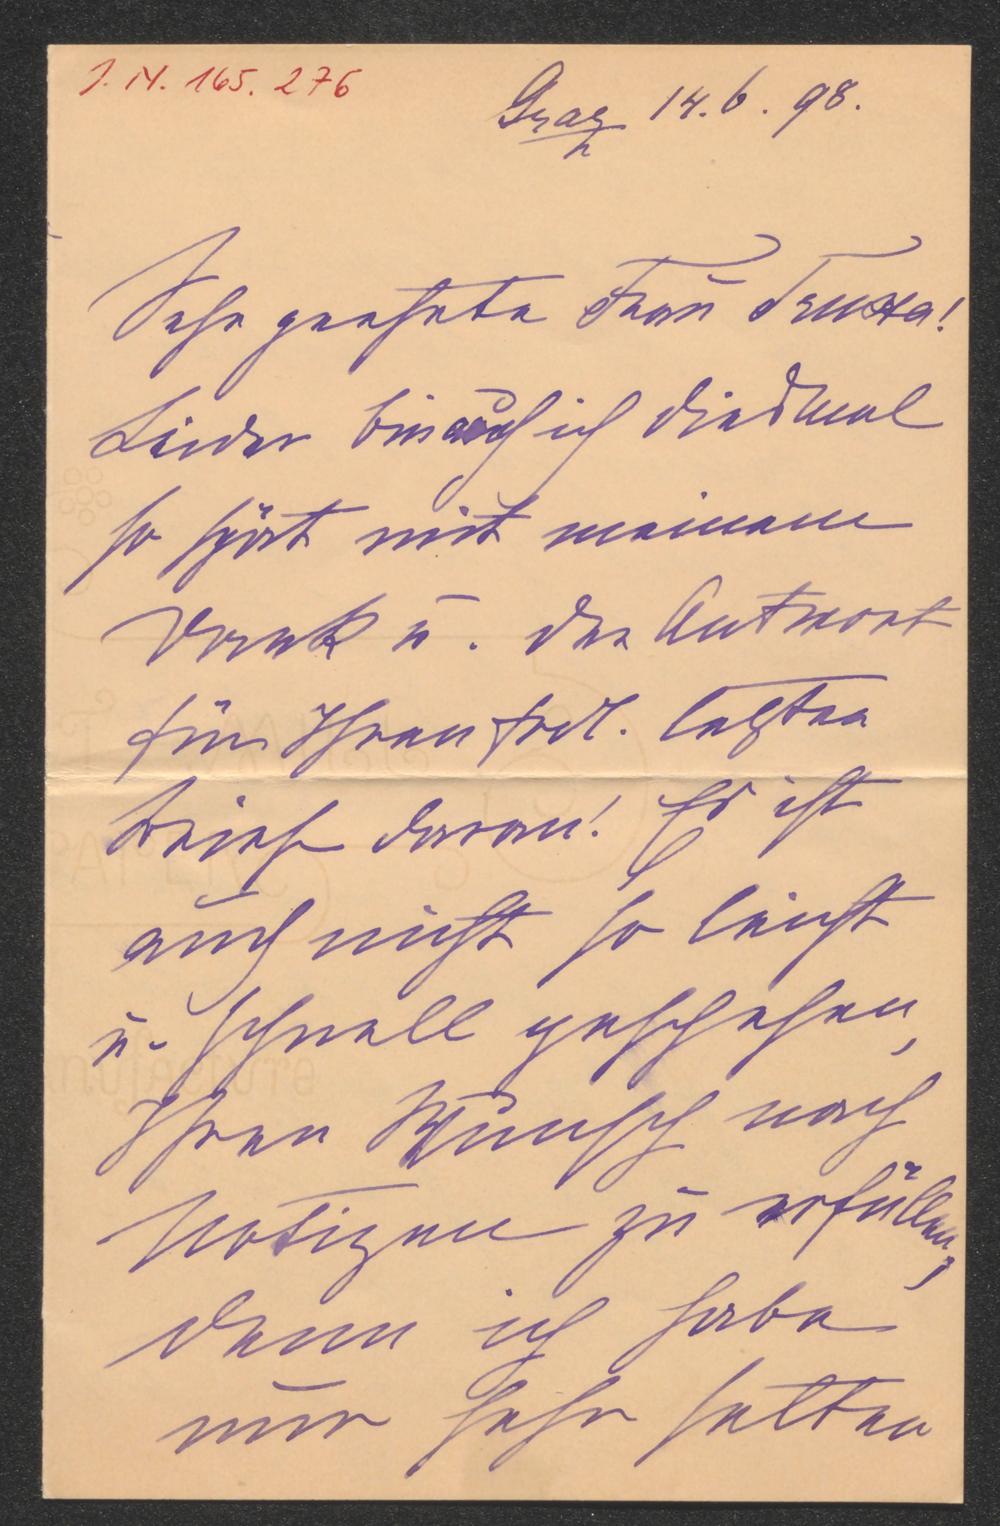 J. N. 165.276
Graz 14.6.98.
Sehr geehrte Frau Truxa!
Leider bin auch ich diesmal
so spät mit meinem
Dank u. der Antwort
für Ihren frdl. letzten
Brief daran! Es ist
auch nicht so leicht
u. schnell geschehen,
Ihren Wunsch nach
Notizen zu erfüllen,
denn ich habe
nur sehr selten